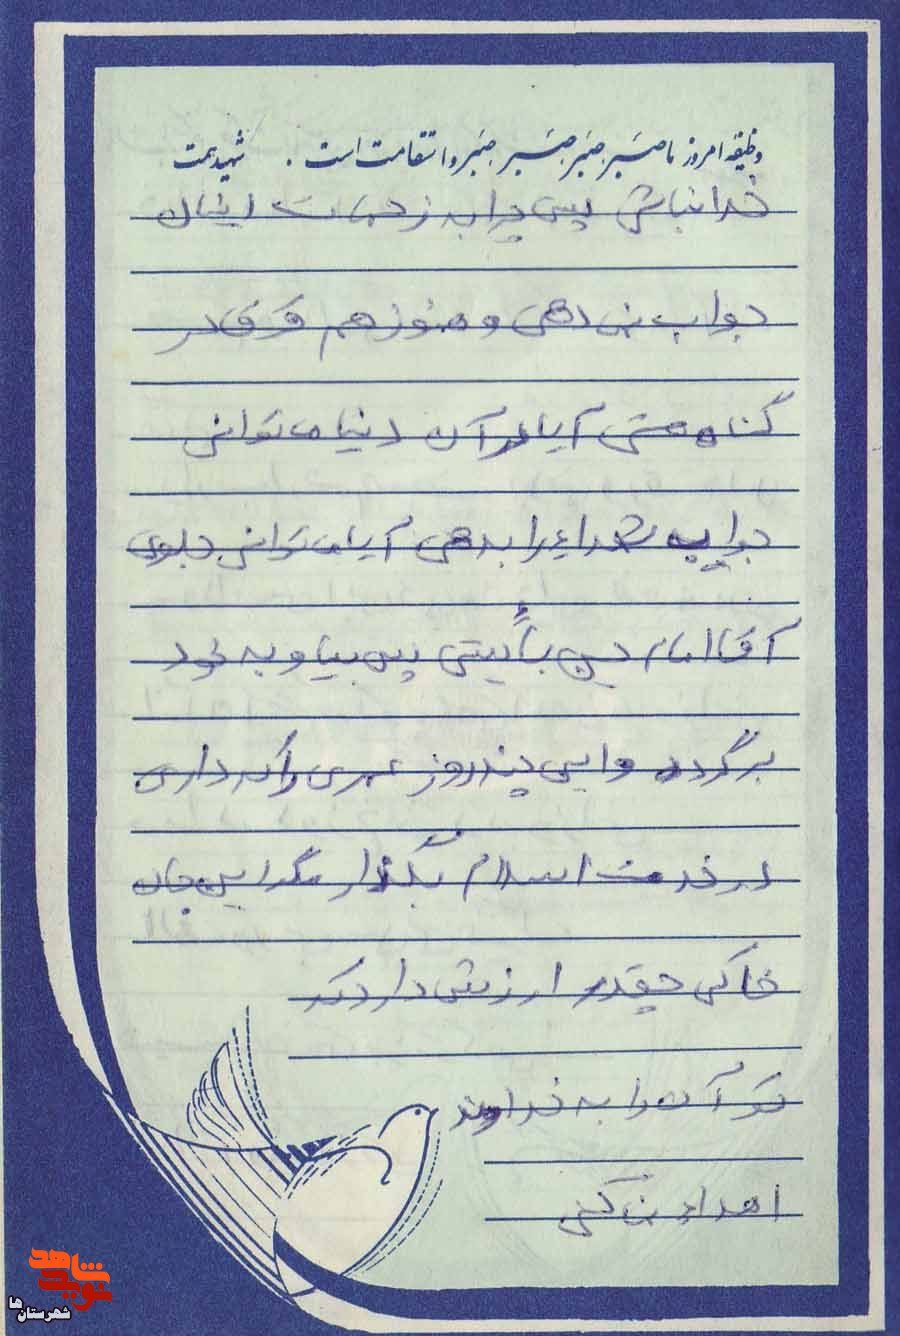 وظیفه امروز ما صبر، صبر، صبر، صبر و استقامت است. شهید همت
خدا نباشی پس چرا به زحمات ایشان
جواب نمی دهی و هنوز هم غرق در
گناه هستی آیا در آن دنیا می توانی
جواب شهدا را بدهی آیا می توانی جلوی
آقا امام حسین بأیستی پس بیا و به خود
برگرد و این چند روز عمری را که داری
در خدمت اسلام بگذار مگر این جان
خاکی چقدر ارزش دارد که
تو آن را به خداوند
اهداء نمی کنی
نوید شاهد
شهرستان ها